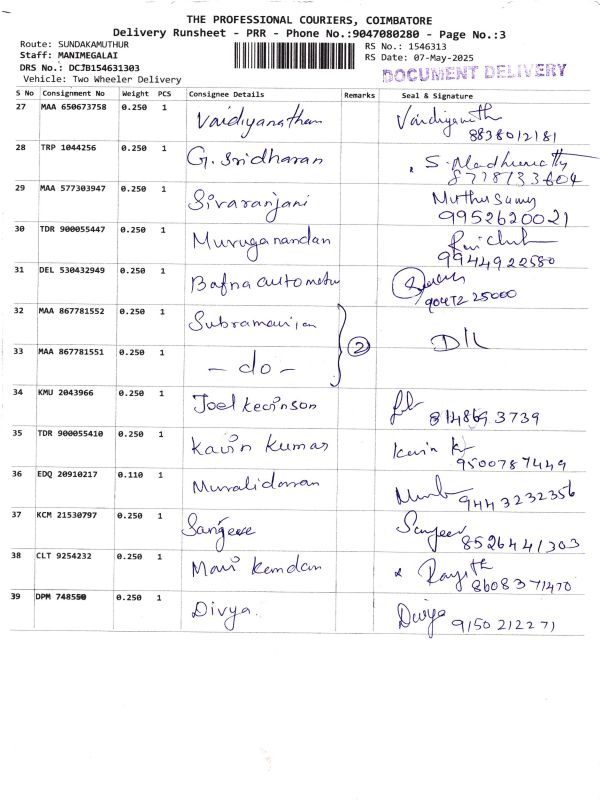 THE PROFESSIONAL COURIERS, COIMBATORE
Delivery Runsheet - PRR - Phone No.:9047080280 - Page No.:3
Route: SUNDAKAMUTHUR
Staff: MANIMEGALAI
DRS No.: DCJB154631303
Vehicle: Two Wheeler Delivery
RS No.: 1546313
RS Date: 07-May-2025
DOCUMENT DELIVERY
S No Consignment No Weight PCS Consignee Details Remarks Seal & Signature
27 MAA 650673758 0.250 1 Vaidiyanathan
8838012181
28 TRP 1044256 0.250 1 G. Sridharan S.
29 MAA 577303947 0.250 1 Sivaranjani Muthusamy
9952620021
30 TDR 900055447 0.250 1 Muruganandan
9944922580
31 DEL 530432949 0.250 1 Bafna
32 MAA 867781552 0.250 1 Subramanian
2
33 MAA 867781551 0.250 1 - do -
34 KMU 2043966 0.250 1 Joel
3739
35 TDR 900055410 0.250 1 Kavin Kumar Kavin K
9500787449
36 EDQ 20910217 0.110 1
9443232356
37 KCM 21530797 0.250 1 Sangeev Sanjeev
8526441303
38 CLT 9254232 0.250 1
8608371470
39 DPM 748550 0.250 1 Divya. Divya 9150212271